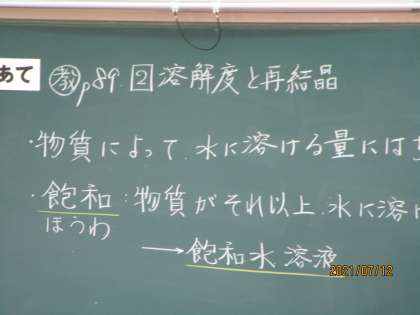 あて
教 p89. 2 溶解度と再結晶
・物質によって、水に溶ける量には
・飽和：物質がそれ以上、水に溶け
ほうわ
→飽和水溶液
2021/07/12